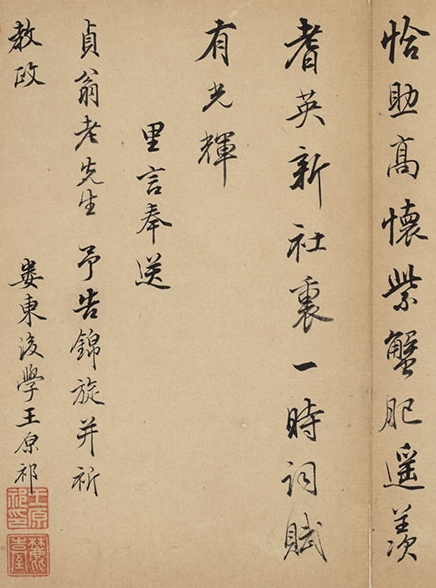 恰助高懷紫蟹肥遥羨
耆英新社裏一時詞賦
有光輝
里言奉送
貞翁老先生予告錦旋并祈
教政
婁東後學王原祁
王原祁印